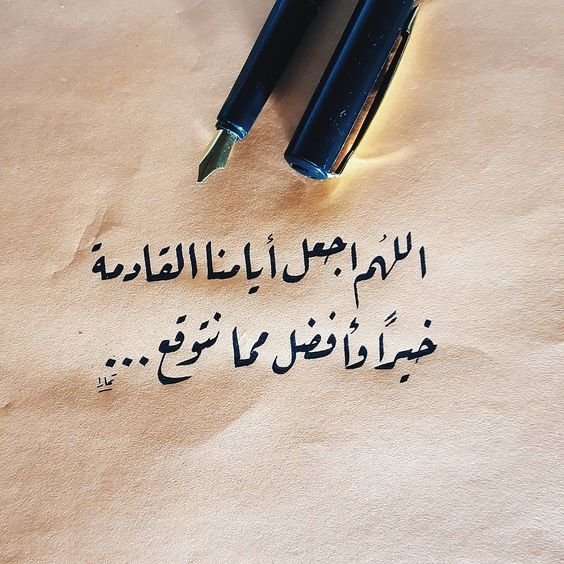 اللهُم اجعل أيامنا القادمة
خيرًا وأفضل مما نتوقع...